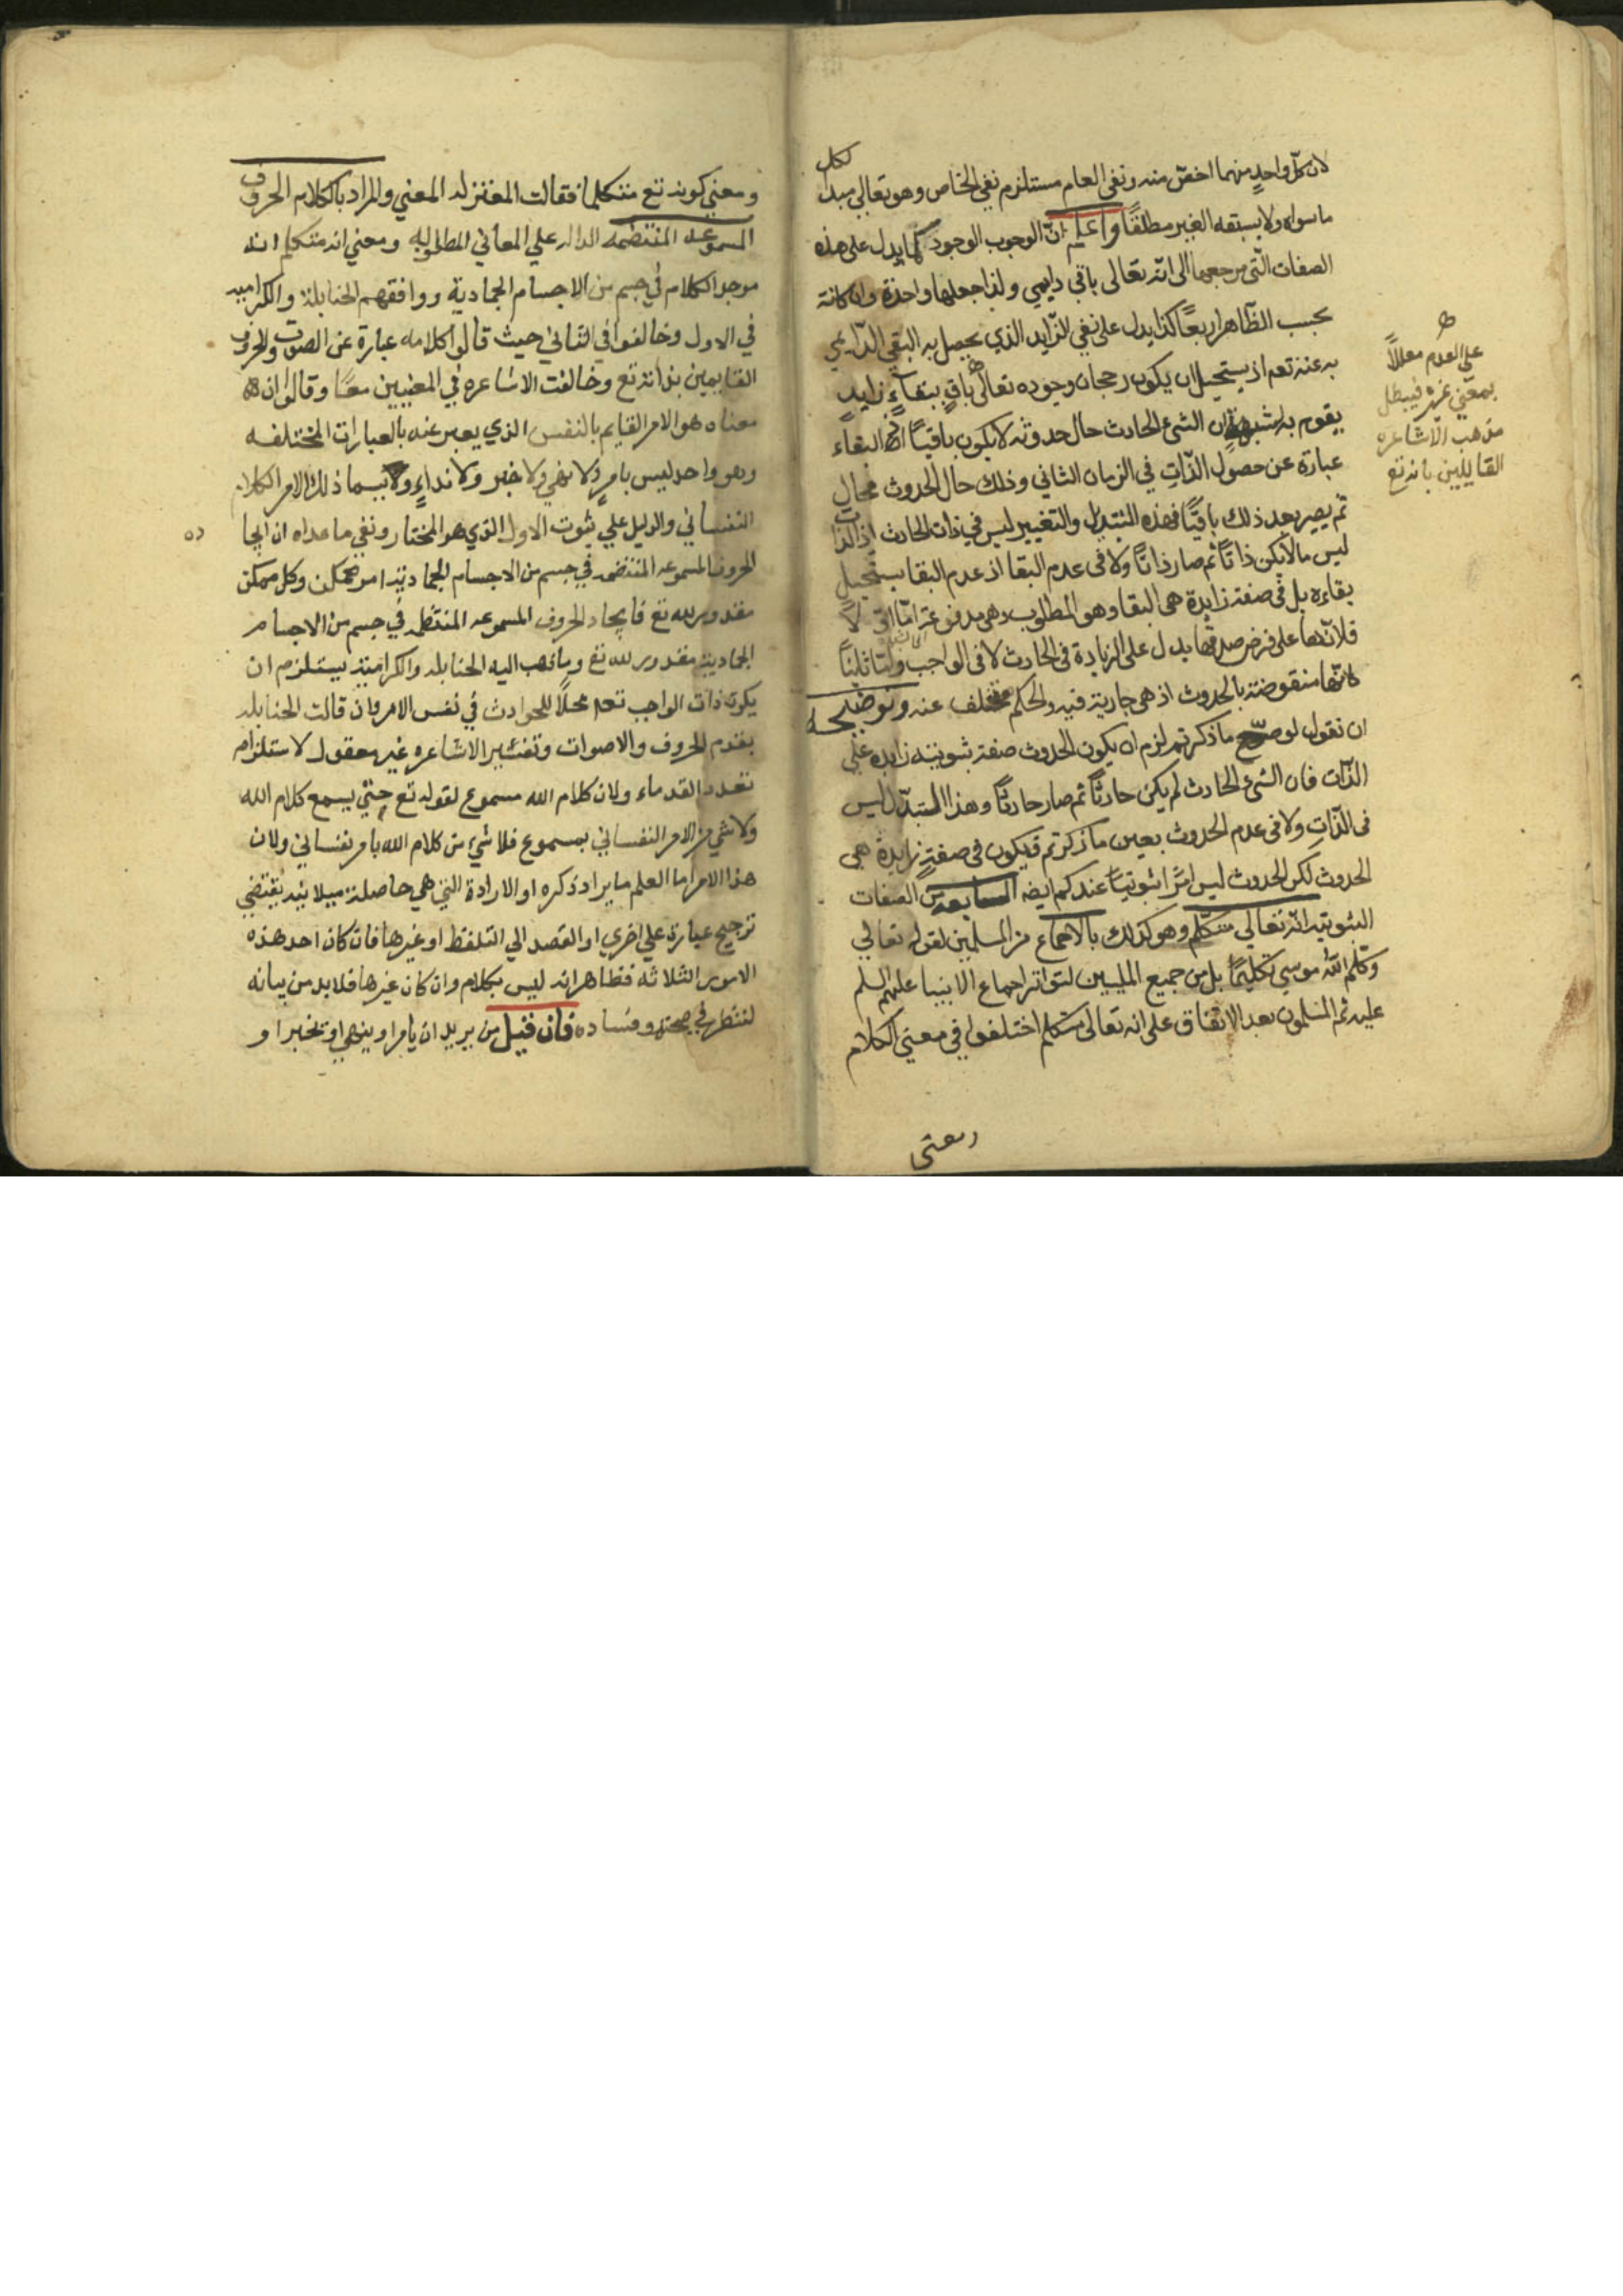 لان كلّ واحدٍ منهما اخصّ منه ونفى العام مستلزم نفى الخاص وهو تعالى مبدا لكل
ما سواه ولا يسبقه الغير مطلقًا واعلم انّ الوجوب الوجود كما يدل على هذه
الصفات الّتى مرجعها الى انّه تعالى باقى دايمى ولذا جعلها واحدة وان كانة
بحسب الظّاهر اربعًا كذا يدل على نفى الزّايد الذي يحصل به البقى الدّايمى
به عنه تعم اذ يستحيل ان يكون رجحان وجوده تعالى باقٍ ببقاءٍ زايدٍ
يقوم به لشبهة ان الشئ الحادث حال حدوثه لا يكون باقيًا اذ البقاء
عبارة عن حصول الذّاتِ في الزمان الثاني وذلك حال الحدوث محال
ثم يصير بعد ذلك باقيًا فهذه التبديل والتغيير ليس في ذات الحادث اذ الذات
ليس مالا يكن ذاتًا ثم صار ذاتًا ولا فى عدم البقا اذ عدم البقا يستحيل
بقاءه بل فى صفة زايدة هى البقا وهو المطلوب وهى مدفوعة امّا اوّلًا
فلانّها على فرض صدقها يدل على الزيادة فى الحادث لا فى الواجب وامّا ثانيًا
فلانّها منقوضة بالحدوث اذ هى جارية فيه والحكم متخلف عنه وتوضيحه
ان نقول لو صحّ ما ذكرتم لزم ان يكون الحدوث صفة ثبوتيه زايده على
الذّات فان الشئ الحادث لم يكن حادثًا ثم صار حادثًا وهذا التبدّل ليس
فى الذّاتِ ولا فى عدم الحدوث بعين ما ذكرتم فيكون فى صفةٍ زايدة هى
الحدوث لكن الحدوث ليس امرًا ثبوتيًا عندكم ايضه السابعة من الصفات
الثبوتية انّه تعالى متكلّم وهو كذلك بالاجماع من المسلمين لقوله تعالى
وكلّم اللّه موسى تكليمًا بل من جميع المليين لتواتر اجماع الانبيا عليهم السلم
عليه ثم المسلمون بعد الاتفاق على انه تعالى متكلم اختلفوا في معنى الكلام
ومعنى
على العدم معللًا
بمعنى غيره فيبطل
مذهب الاشاعره
القايلين بانه تع
ومعنى كونه تع متكلما فقالت المعتزله المعني والمراد بالكلام الحروف
المسموعه المنتظمه الداله علي المعاني المطلوبه ومعني انه متكلم انه
موجد الكلام في جسم من الاجسام الجمادية ووافقهم الحنابلة والكراميه
في الاول وخالفوا في الثاني حيث قالوا كلامه عبارة عن الصوت والحروف
القايمين بذاته تع وخالفت الاشاعره في المعنيين معًا وقالوا ان
معناه هو الامر القايم بالنفس الذي يعبر عنه بالعبارات المختلفه
وهو واحد ليس بامرٍ ولا نهي ولا خبر ولا نداءٍ ويسما ذلك الامر الكلام
النفساني والدليل علي ثبوت الاول الذي هو المختار ونفي ما عداه ان ايجاده
الحروف المسموعه المنتضمه في جسم من الاجسام الجمادية امر ممكن وكل ممكن
مقدور لله تع فايجاد الحروف المسموعه المنتظمه في جسم من الاجسام
الجمادية مقدور لله تع وما ذهب اليه الحنابله والكرامية يستلزم ان
يكون ذات الواجب تعه محلًا للحوادث في نفس الامر وان قالت الحنابله
بقدم الحروف والاصوات وتفسير الاشاعره غير معقول لاستلزام
تعدد القدماء ولان كلام الله مسموع لقوله تع حتي يسمع كلام الله
ولا شي من الامر النفساني بمسموع فلا شيء من كلام الله بامر نفساني ولان
هذا الامر اما العلم ما يراد ذكره او الارادة التي هي حاصلة يقتضي
ترجيح عبارة علي اخري او القصد الي التلفظ او غيرها فان كان احد هذه
الامور الثلاثه فظاهر انه ليس بكلام وان كان غيرها فلابد من بيانه
لننظر في صحته وفساده فان قيل من يريد ان يامر او ينهي او يخبر او